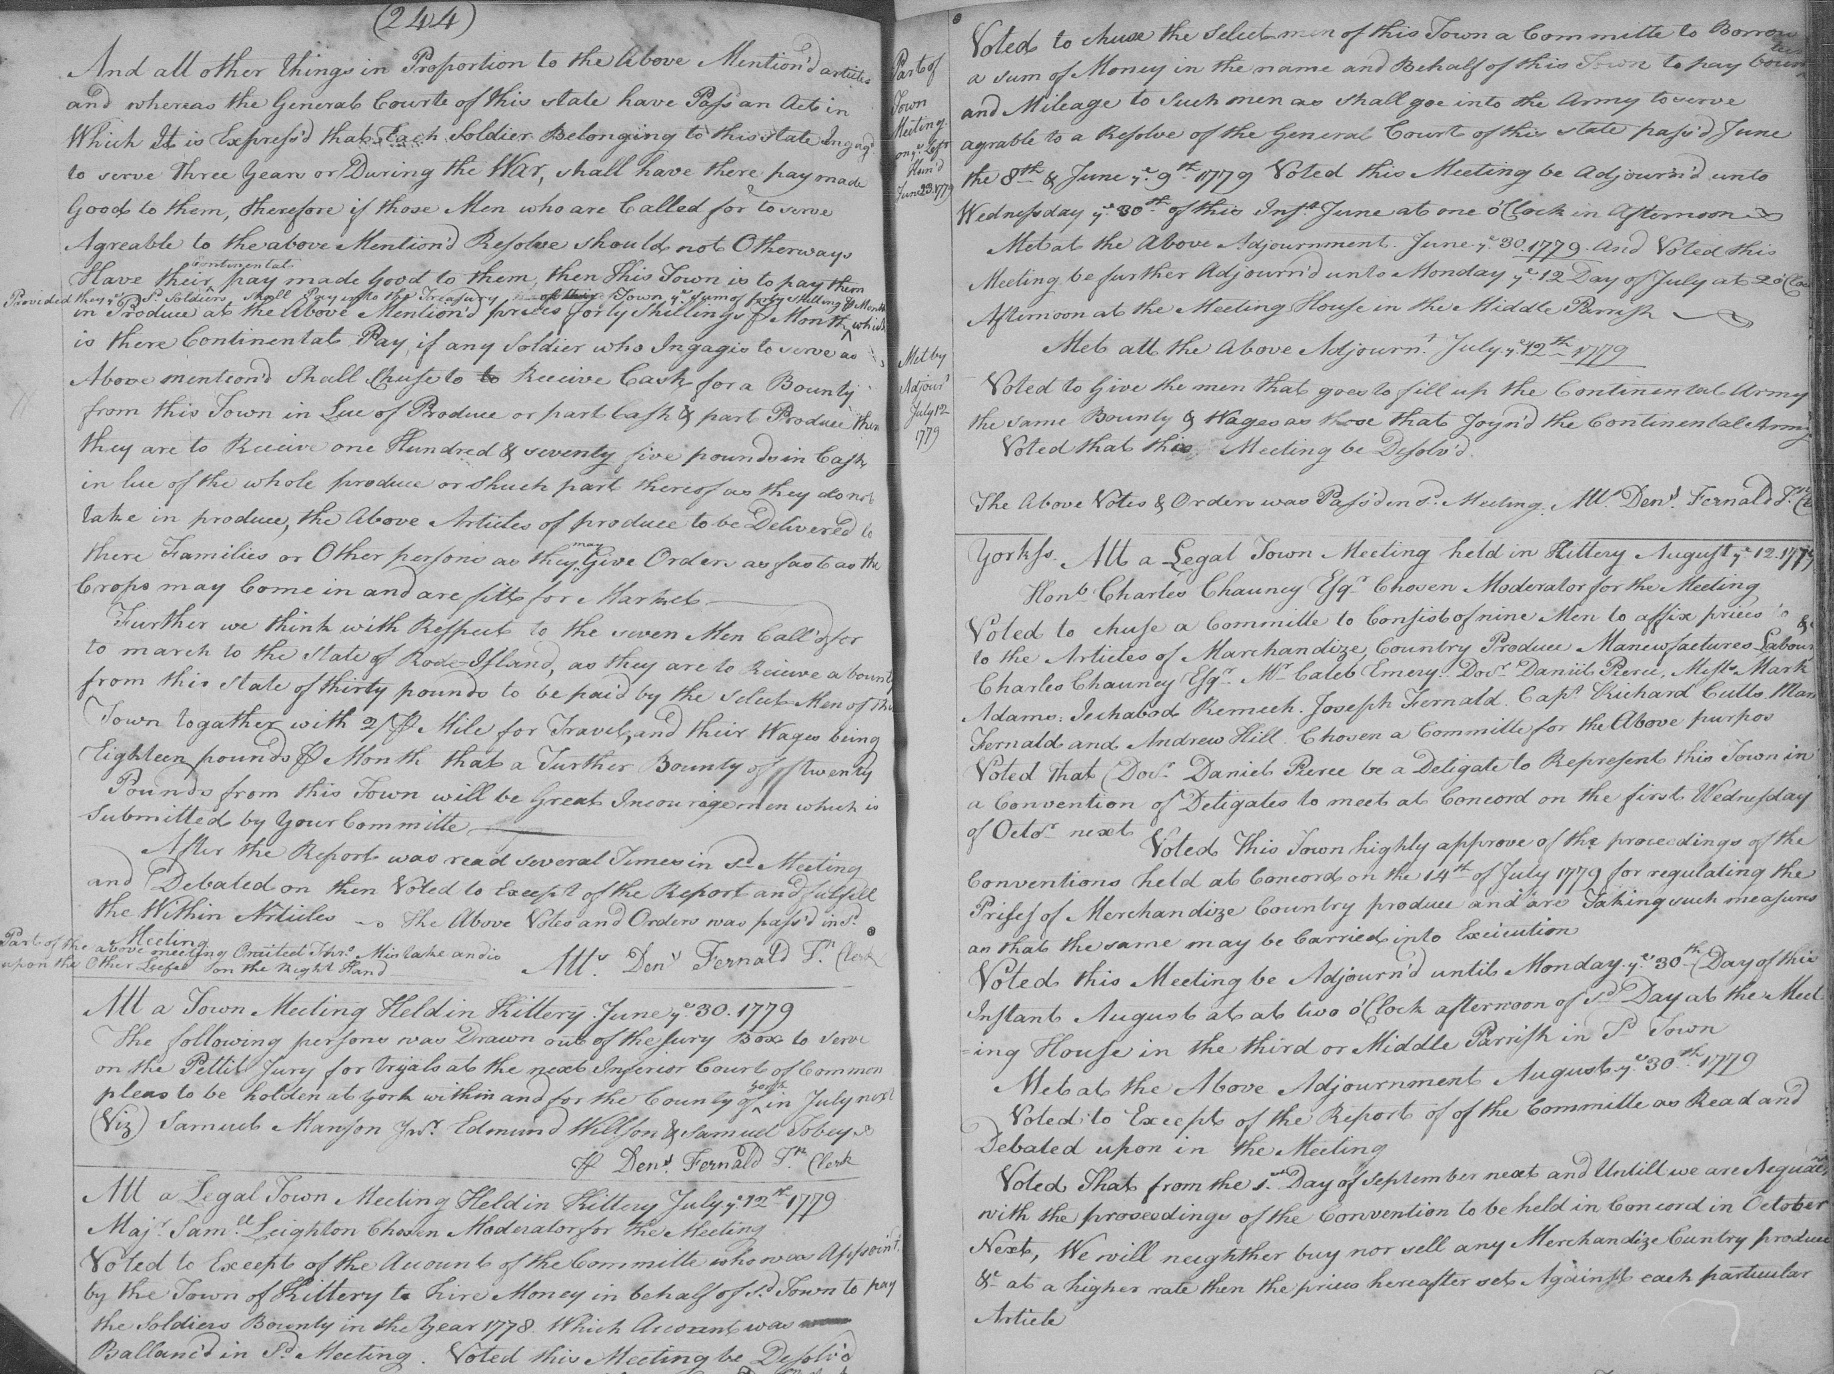 (244)
And all other things in Proportion to the Above Mention'd articles
and whereas the General Courte of this state have Pass an Act in
Which It is Express'd that Each Soldier Belonging to this State Ingag'd
to serve Three Years or During the War, shall have there pay made
Good to them, Therefore if those Men who are Called for to serve
Agreable to the above Mention'd Resolve should not Otherways
Have their continental pay made Good to them, then This Town is to pay them
Provided they ye sd Soldiers shall Pay into the Treasury of this Town ye sum of forty shilling ⅌ Month
in Produce at the Above Mention'd prices forty Shillings ⅌ Month which
is there Continental Pay, if any Soldier who Ingagis to serve as
Above mention'd Shall Chuse to to Receive Cash for a Bounty
from this Town in Lue of Produce or part Cash & part Produce then
they are to Receive one Hundred & seventy five pounds in Cash
in lue of the whole produce or shuch part thereof as they do not
take in produce, the Above Articles of produce to be Delivered to
there Families or Other persons as they may Give Orders as fast as the
Crops may Come in and are fitt for Market
Further we think with Respect to the seven Men Call'd for
to march to the State of Rode-Island, as they are to Receive a bounty
from this State of thirty pounds to be paid by the Select Men of this
Town togather with 2/ ⅌ Mile for Travel, and their Wages being
Eighteen pounds ⅌ Month that a Further Bounty of twenty
Pounds from this Town will be Great Incouragemen which is
Submitted by Your Committe
After the Report was read several Times in sd Meeting
and Debated on then Voted to Except of the Report and fulfill
the Within Articles The Above Votes and Orders was pass'd in sd
Meeting
Part of the above meeting Omited Thro Mistake and is
upon the Other Leefe on the Right Hand
Attr. Denn Fernald Jnr Clerk
Att a Town Meeting Held in Kittery June ye 30. 1779
The following persons was Drawn out of the Jury Box to serve
on the Pettit Jury for tryals at the next Inferior Court of Common
pleas to be holden at York within and for the County of York in July next
(Viz) Samuel Manson Junr. Edmund Willson & Samuel Tobey
⅌ Denn. Fernald Jnr. Clerk
Att a Legal Town Meeting Held in Kittery July ye 12th 1779
Majr Samll Leighton Chosen Moderator for the Meeting
Voted to Except of the Acount of the Committe who was Appoint
by the Town of Kittery to hire Money in behalf of sd Town to pay
the Soldiers Bounty in the Year 1778. Which Account was
Ballanc'd in Sd Meeting. Voted this Meeting be Desolv'd
Part of
Town
Meeting
on ye Left
Han'd
June 23. 1779
Voted to chuse the Select men of this Town a Committe to Borrow
a sum of Money in the name and Behalf of this Town to pay bounties
and Mileage to Such men as shall goe into the Army to serve
agrable to a Resolve of the General Court of this state pass'd June
the 8th & June ye 9th 1779 Voted this Meeting be Adjourn'd unto
Wednessday ye 30th of this Inst June at one o'Clock in Afternoon
Met at the Above Adjournment June ye 30. 1779. And Voted this
Meeting be further Adjourn'd unto Monday ye 12 Day of July at 2 o'Cloc
Afternoon at the Meeting House in the Middle Parrish
Met by
Adjour'
July 12
1779
Met att the Above Adjournt. July ye 12th 1779
Voted to Give the men that goes to fill up the Continental Army
the same Bounty & Wages as those that Joyn'd the Continental Army
Voted that this Meeting be Desolv'd.
The Above Votes & Orders was Pass'd in sd. Meeting. Attr. Denn. Fernald Jnr Cle
York ss. Att a Legal Town Meeting held in Kittery August ye 12. 1779
Honb. Charles Chauncy Esqr Chosen Moderator for the Meeting
Voted to chuse a Committe to Consist of nine Men to affix prices
to the Articles of Marchandize, Country Produce Manewfactures Labour &c
Charles Chauncy Esqr. Mr Caleb Emery. Docr Daniel Pierce, Messrs Mark
Adams. Ichabod Remech. Joseph Fernald. Capt. Richard Cutts, Mark
Fernald and Andrew Hill Chosen a Committe for the Above purpos
Voted That Docr. Daniel Pierce be a Deligate to Represent this Town in
a Convention of Deligates to meet at Concord on the first Wednesday
of Octor next Voted This Town highly approve of the proceedings of the
Conventions held at Concord on the 14th of July 1779 for regulating the
Prises of Merchandize Country produce and are Taking such measures
as that the same may be Carried into Execution
Voted this Meeting be Adjourn'd until Monday ye 30th Day of this
Instant August at at two o'Clock afternoon of sd Day at the Meet
=ing House in the third or Middle Parrish in sd Town
Met at the Above Adjournment August ye 30th 1779
Voted to Except of the Report of of the Committe as Read and
Debated upon in the Meeting
Voted That from the 1st Day of September next and Untill we are Aquain
with the proceedings of the Convention to be held in Concord in October
Next, We will neighther buy nor sell any Merchandize Cuntry produce
&c at a higher rate then the prices hereafter set Against each particular
Article